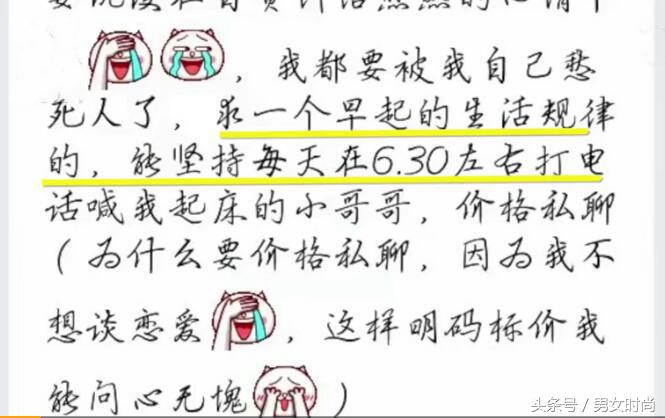 ，我都要被我自己愁
死人了，求一个早起的生活规律
的，能坚持每天在6.30左右打电
话喊我起床的小哥哥，价格私聊
（为什么要价格私聊，因为我不
想谈恋爱，这样明码标价我
能问心无愧）
头条号／男女时尚